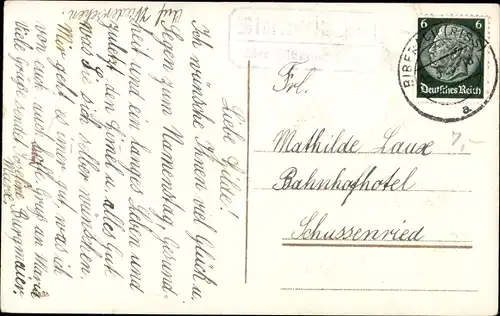 Liebe Hilde!
Ich wünsche Ihnen viel Glück u.
Segen zum Namenstag, Gesund-
heit und ein langes Leben und
zuletzt den Himel u. alles Gute
was Sie sich selber wünschen.
Mir geht es imer gut, was ich
von euch auch hoffe. Gruß an Maria
Viele Grüße sendet
Burgmaier.
auf Wiedersehen.
BIBERACH (RISS)
a
6 6
Deutsches Reich
Frl.
Mathilde Laux
Bahnhofhotel
Schussenried
7,-